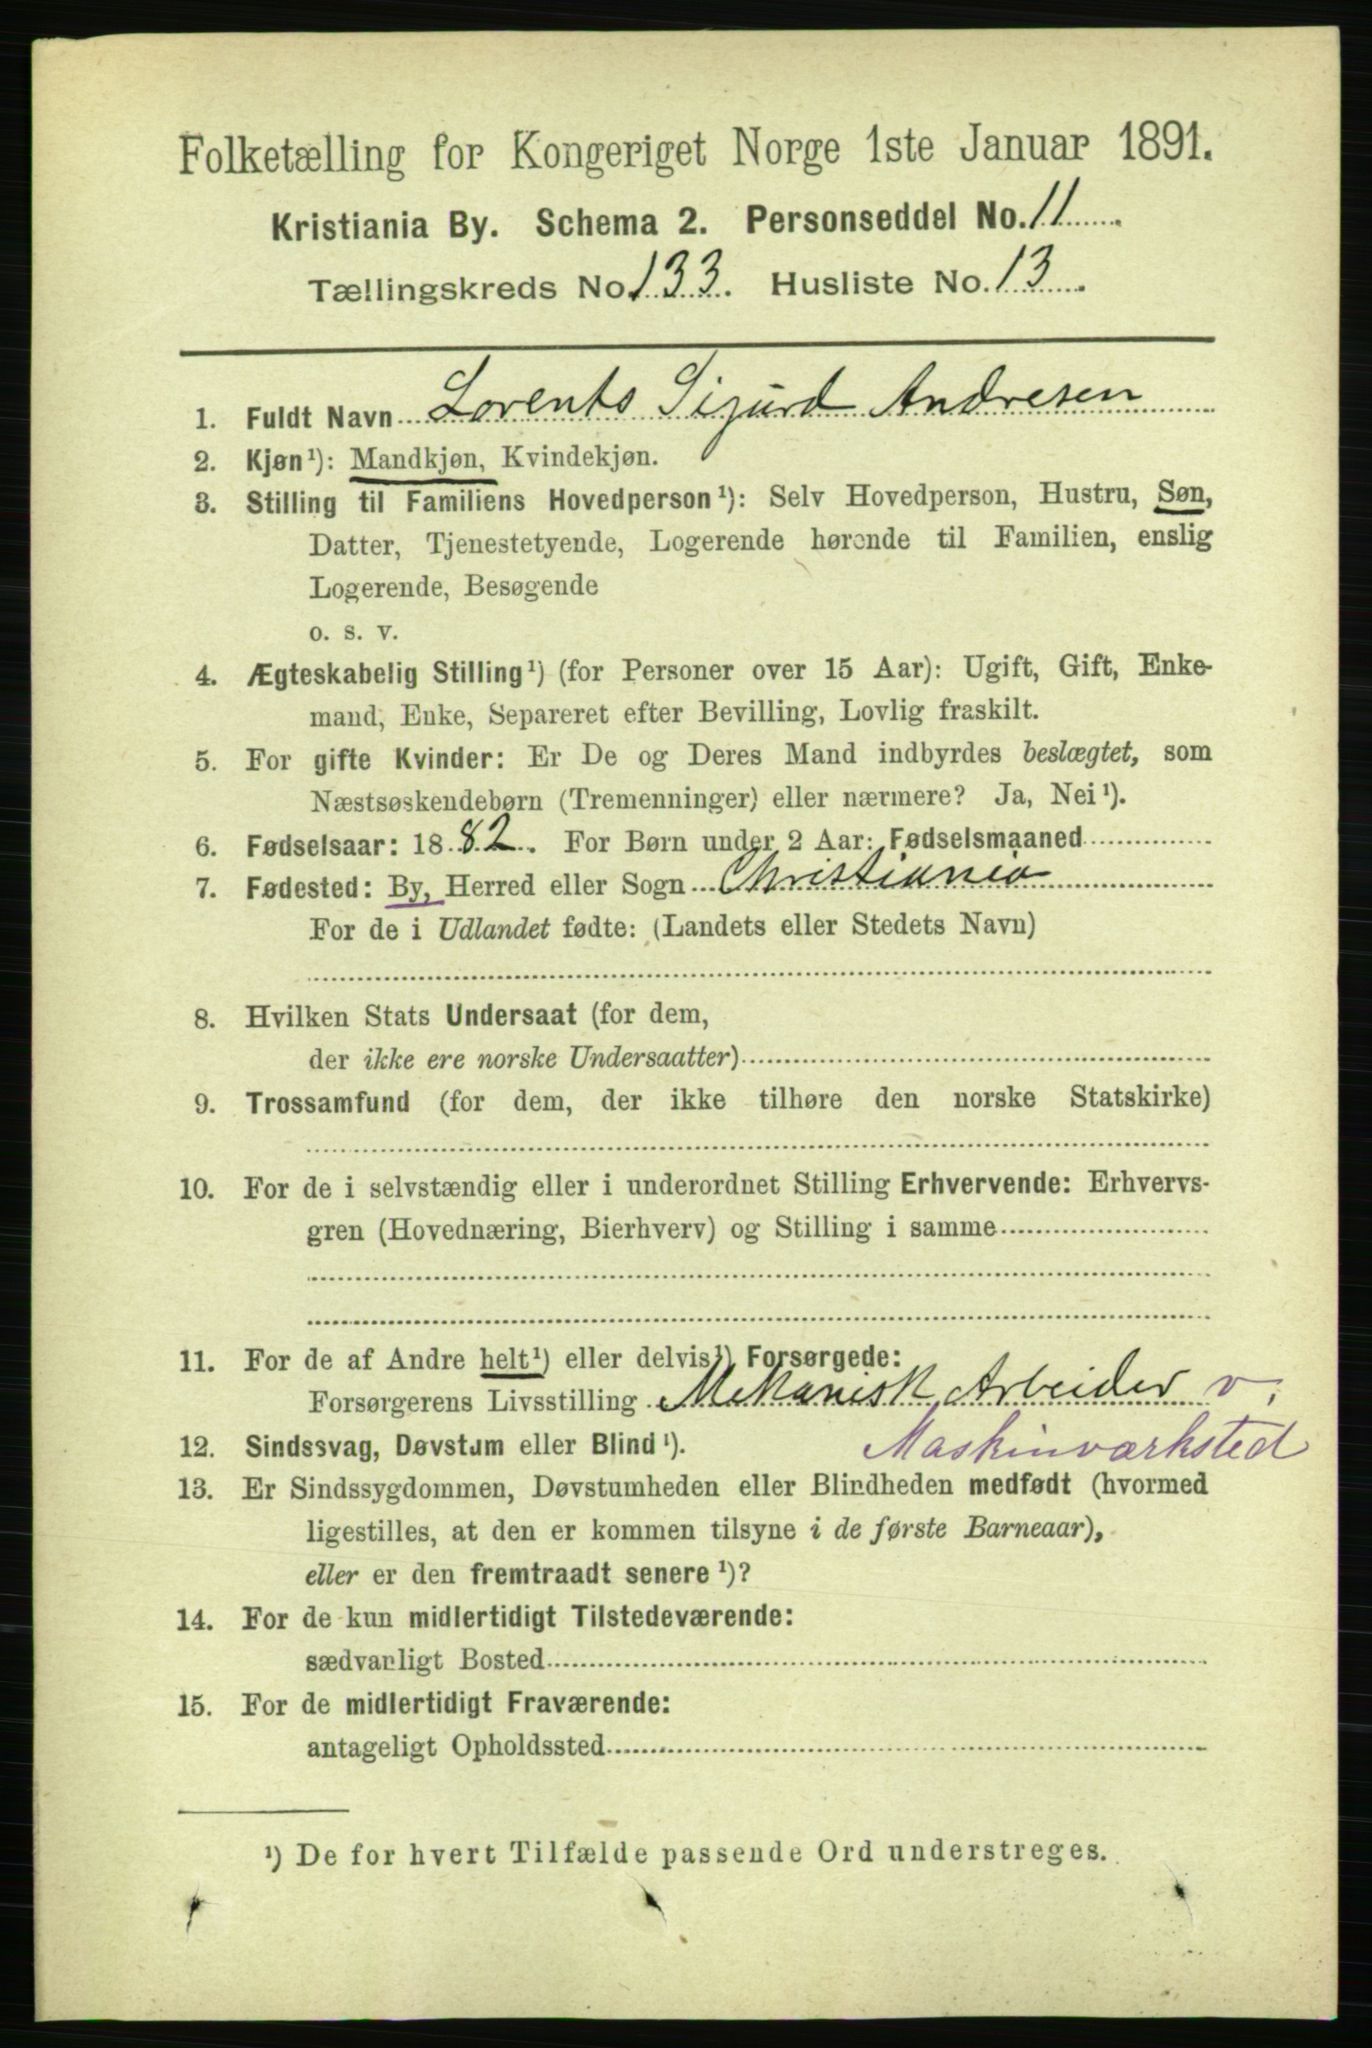 Folketælling for Kongeriget Norge 1ste Januar 1891.
Kristiania By. Schema 2. Personseddel No. 11
Tællingskreds No. 133. Husliste No. 13.
1. Fuldt Navn Lorents Sigurd Andresen
2. Kjøn¹): Mandkjøn, Kvindekjøn.
3. Stilling til Familiens Hovedperson¹): Selv Hovedperson, Hustru, Søn,
Datter, Tjenestetyende, Logerende hørende til Familien, enslig
Logerende, Besøgende
o. s. v.
4. Ægteskabelig Stilling¹) (for Personer over 15 Aar): Ugift, Gift, Enke-
mand, Enke, Separeret efter Bevilling, Lovlig fraskilt.
5. For gifte Kvinder: Er De og Deres Mand indbyrdes beslægtet, som
Næstsøskendebørn (Tremenninger) eller nærmere? Ja, Nei¹).
6. Fødselsaar: 1882. For Børn under 2 Aar: Fødselsmaaned
7. Fødested: By, Herred eller Sogn Christiania
For de i Udlandet fødte: (Landets eller Stedets Navn)
8. Hvilken Stats Undersaat (for dem,
der ikke ere norske Undersaatter)
9. Trossamfund (for dem, der ikke tilhøre den norske Statskirke)
10. For de i selvstændig eller i underordnet Stilling Erhvervende: Erhvervs-
gren (Hovednæring, Bierhverv) og Stilling i samme
11. For de af Andre helt¹) eller delvis¹) Forsørgede:
Forsørgerens Livsstilling Mekanisk Arbeider v.
Maskinværksted
12. Sindssvag, Døvstum eller Blind¹).
13. Er Sindssygdommen, Døvstumheden eller Blindheden medfødt (hvormed
ligestilles, at den er kommen tilsyne i de første Barneaar),
eller er den fremtraadt senere¹)?
14. For de kun midlertidigt Tilstedeværende:
sædvanligt Bosted
15. For de midlertidigt Fraværende:
antageligt Opholdssted
¹) De for hvert Tilfælde passende Ord understreges.